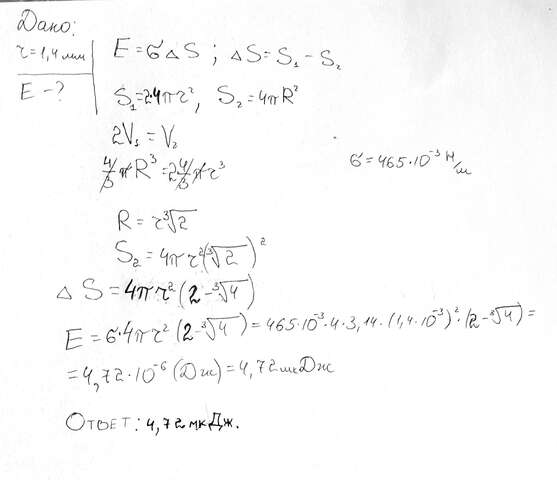 Дано:
r=1,4 мм
E-?
E=σΔS; ΔS=S₁-S₂
S₁=2·4πr², S₂=4πR²
2V₁=V₂
4/3 πR³=2 4/3 πr³
σ=465·10⁻³ Н/м
R=r∛2
S₂=4πr²(∛2)²
ΔS=4πr²(2-∛4)
E=σ·4πr²(2-∛4)=465·10⁻³·4·3,14·(1,4·10⁻³)²·(2-∛4)=
=4,72·10⁻⁶(Дж)=4,72мкДж
Ответ: 4,72мкДж.